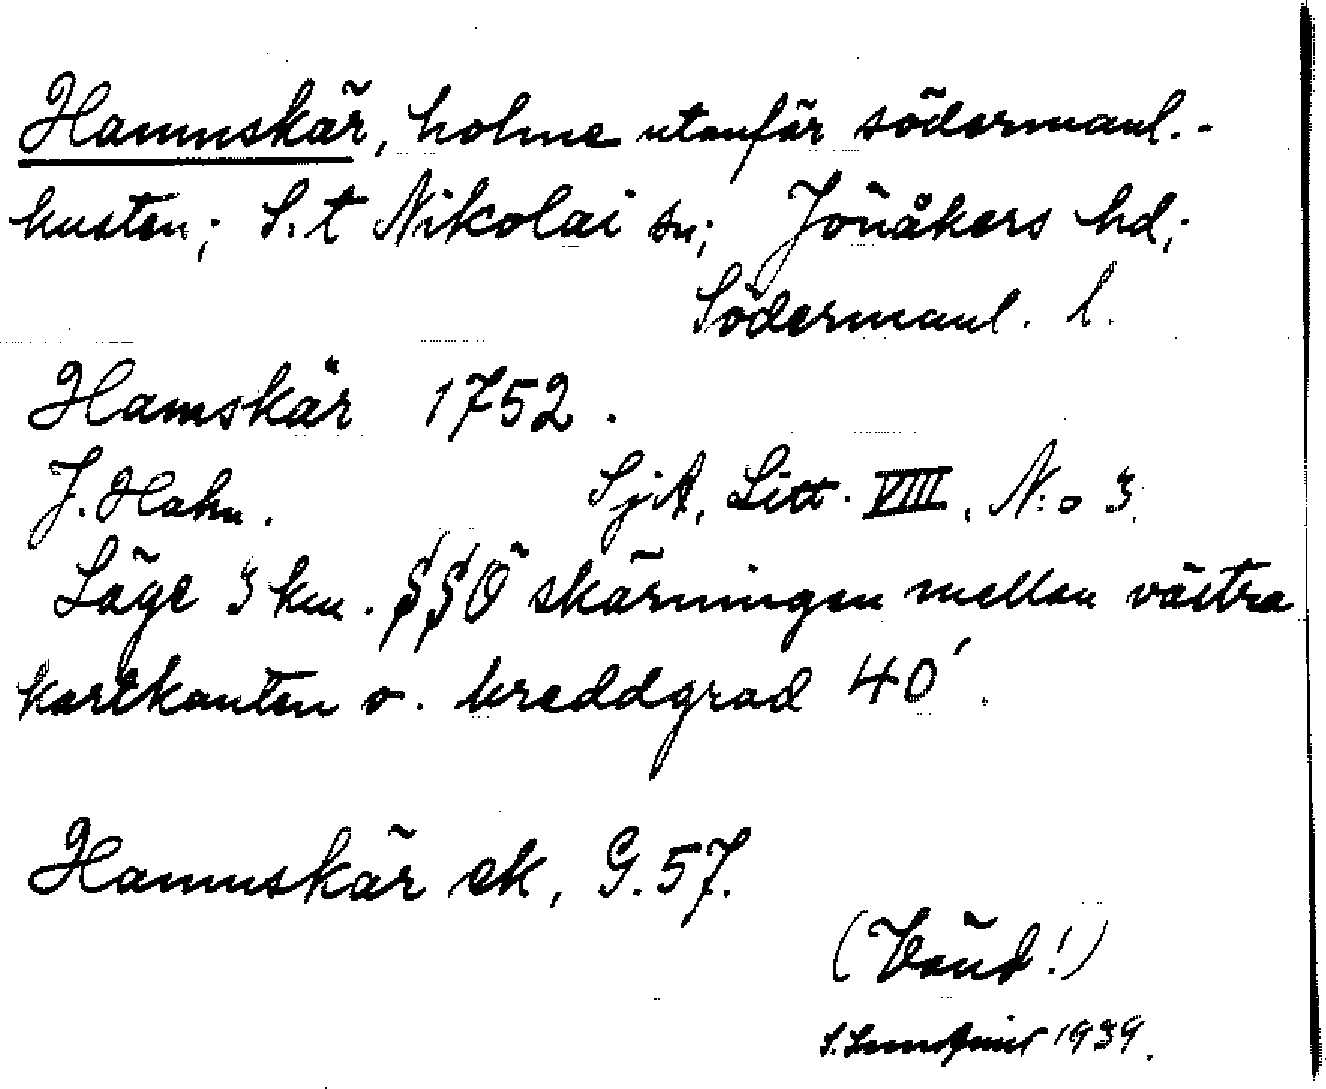 Hamnskär, holme utanför södermanl.-
kusten; S:t Nikolai sn; Jönåkers hd;
Södermanl. l.
Hamskär 1752.
J. Hahn. SjA, Litt. VIII, N:o 3.
Läge 3 km. SSO skärningen mellan västra
kartkanten o. breddgrad 40'.
Hamnskär ek, G. 57.
(Vänd!)
S. Lundqvist 1939.